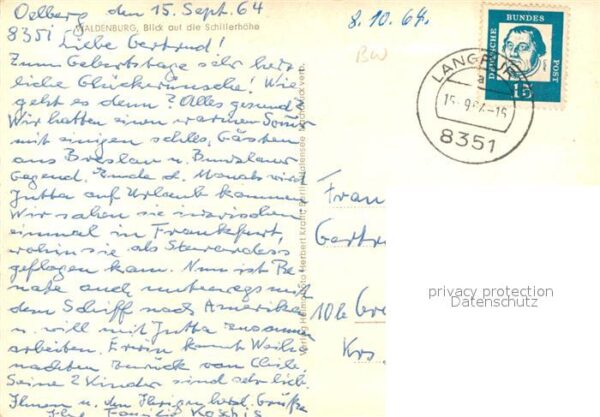 Oelberg den 15. Sept. 64
8351
WALDENBURG, Blick auf die Schillerhöhe
Liebe Gertrud!
Zum Geburtstage sehr herz
liche Glückwünsche! Wie
geht es denn? Alles gesund?
Wir hatten einen warmen
mit einigen schles. Gästen
aus Breslau u. Bunzlauer
Gegend. Ende d. Monats wird
Jutta auf Urlaub kommen
Wir sahen sie inzwischen
einmal in Frankfurt,
wohin sie als Stewardess
geflogen kam. Nun ist Re
nate auch unterwegs mit
dem Schiff nach Amerika
u. will mit Jutta zusammen
arbeiten. Erwin kommt Weih
nachten zurück von Chile.
Seine 2 Kinder sind sehr lieb.
Ihnen u. den Ihrigen herzl. Grüße
Ihre Familie Koschis
Verlag Herbert Kraft, Berlin-Halensee Nachdruck verb.
8.10.64.
BW
LANGFUR
a
15.-9.64-15
8351
DEUTSCHE
BUNDES
POST
15
Frau
Gertru
10 b
Krs
privacy protection
Datenschutz